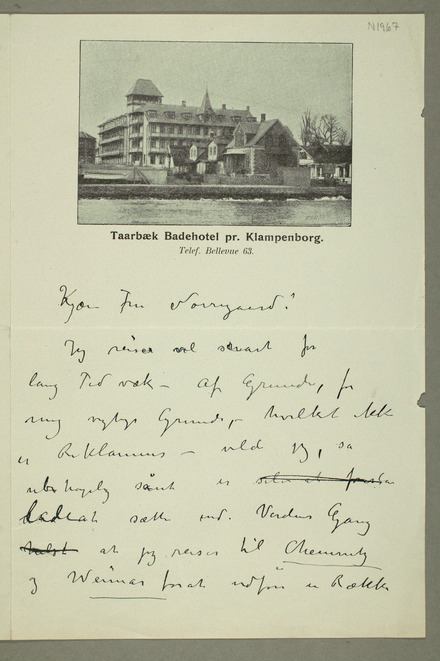 N1967
Taarbæk Badehotel pr. Klampenborg.
Telef. Bellevue 63.
Kjære Fru Norregaard!
Jeg reiser vel snart for
lang Tid væk – Af Grunde, for
mig vigtige Grunde, – hvilket ikke
er Reklamens – vild jeg, sa
ubehagelig sånt er
ladeat sætte ind. Verdens Gang
at jeg reiser til Chemnitz
og Weimar forat udføre en Række